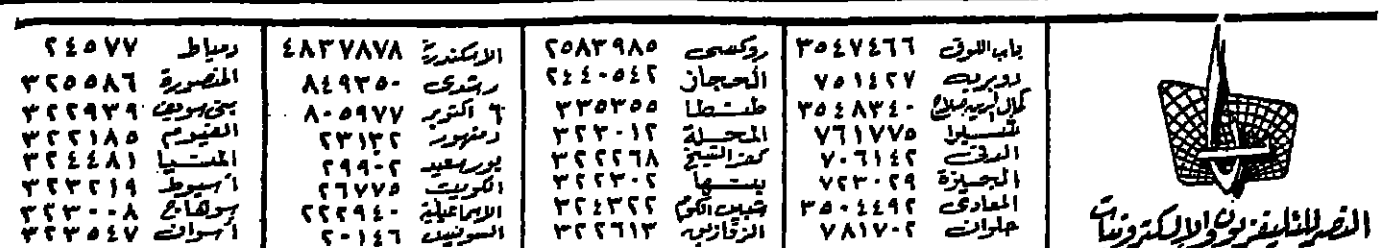 باب اللوق ٣٥٤٧٤٦٦
دوبريه ٧٥١٤٢٧
كمال الدين صلاح ٣٥٤٨٣٤٠
٧٦١٧٧٥
الدقى ٧٠٦١٤٢
الجيزة ٧٢٣٠٢٩
المعادى ٣٥٠٤٤٩٢
حلوان ٧٨١٧٠٢
روكسى ٢٥٨٣٩٨٥
الحجاز ٢٤٤٠٥٤٢
طنطا ٣٣٥٣٥٥
المحلة ٣٢٣٠١٢
كفر الشيخ ٣٢٢٢٦٨
بنها ٣٢٢٣٠٢
شبين الكوم ٣٢٤٣٢٢
الزقازيق ٣٢٢٦١٣
الاسكندرية ٤٨٣٧٨٧٨
رشدى ٨٤٩٣٥٠
٦ اكتوبر ٨٠٥٩٧٧
دمنهور ٢٣١٣٢
بورسعيد ٢٩٩٠٢
الكويت ٢٦٧٧٥
الاسماعيلية ٢٢٢٩٤٠
السويس ٢٠١٤٦
دمياط ٢٤٥٧٧
المنصورة ٣٢٥٥٨٦
بنى سويف ٣٢٢٩٣٩
الفيوم ٣٢٢١٨٥
المنيا ٣٢٤٤٨١
أسيوط ٣٢٣٢١٩
سوهاج ٣٢٣٠٠٨
أسوان ٣٢٣٥٤٧
النصر للتليفزيون والإلكترونيات